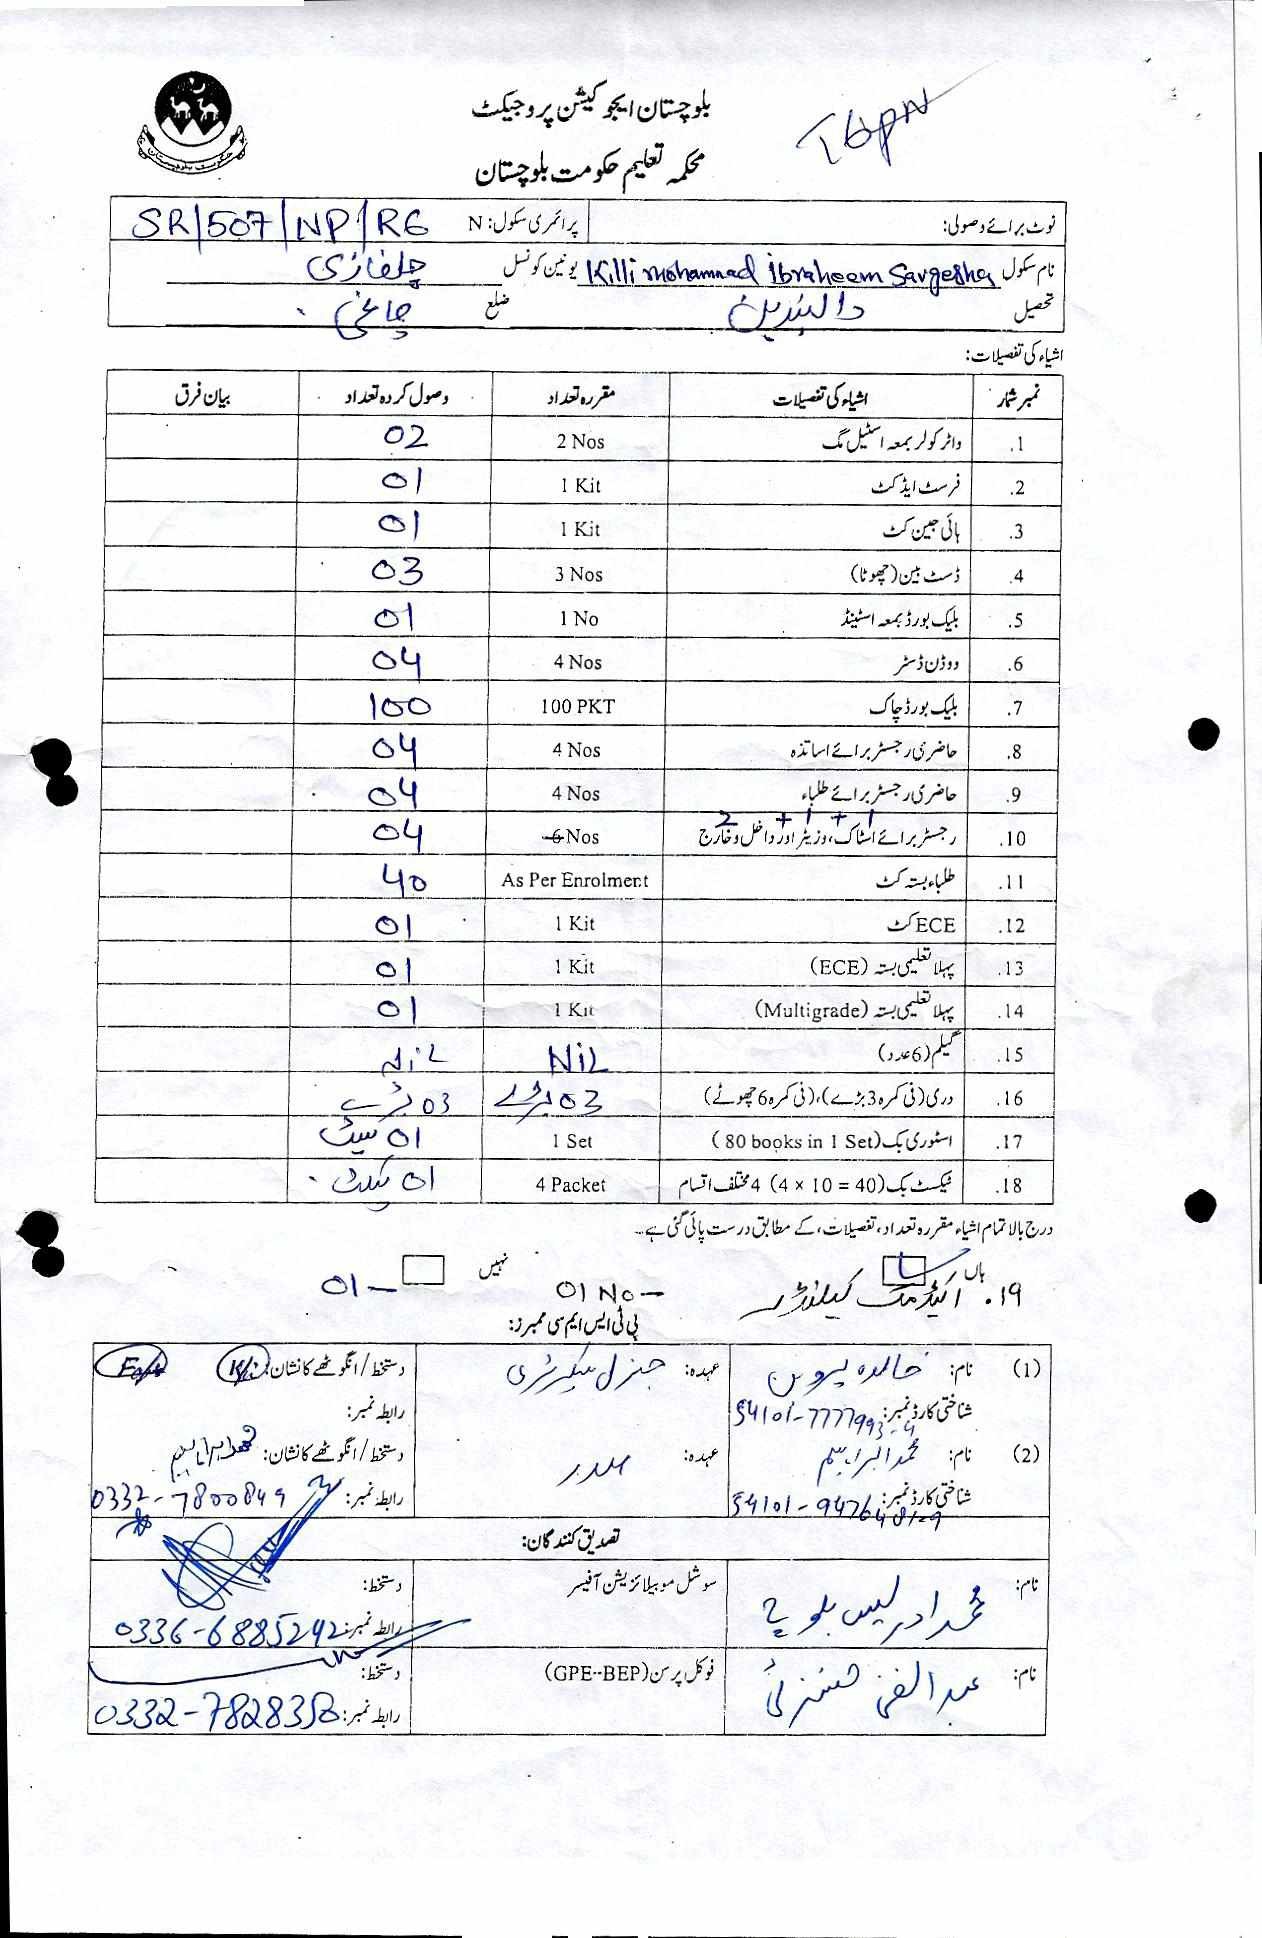 بلوچستان ایجوکیشن پروجیکٹ
محکمہ تعلیم حکومت بلوچستان
حکومت بلوچستان
نوٹ برائے وصولی: پرائمری سکول: N SR/507/NP/RG
نام سکول Killi mohammad ibraheem Sargesha یونین کونسل
تحصیل دالبندین ضلع چاغی
اشیاء کی تفصیلات:
نمبر شمار اشیاء کی تفصیلات مقررہ تعداد وصول کردہ تعداد بیان فرق
1. واٹر کولر بمعہ اسٹیل مگ 2 Nos 02
2. فرسٹ ایڈ کٹ 1 Kit 01
3. ہائی جین کٹ 1 Kit 01
4. ڈسٹ بین (چھوٹا) 3 Nos 03
5. بلیک بورڈ بمعہ اسٹینڈ 1 No 01
6. ووڈن ڈسٹر 4 Nos 04
7. بلیک بورڈ چاک 100 PKT 100
8. حاضری رجسٹر برائے اساتذہ 4 Nos 04
9. حاضری رجسٹر برائے طلباء 4 Nos 04
2 + 1 + 1
10. رجسٹر برائے اسٹاک، وزیٹر اور داخل و خارج 6 Nos 04
11. طلباء بستہ کٹ As Per Enrolment 40
12. ECE کٹ 1 Kit 01
13. پہلا تعلیمی بستہ (ECE) 1 Kit 01
14. پہلا تعلیمی بستہ (Multigrade) 1 Kit 01
15. گیلم (6 عدد) NiL NiL
16. دری (فی کمرہ 3 بڑے)، (فی کمرہ 6 چھوٹے) 03 بڑے 03 بڑے
17. اسٹوری بک (80 books in 1 Set) 1 Set 01 سیٹ
18. ٹیکسٹ بک (4 x 10 = 40) 4 مختلف اقسام 4 Packet 01
درج بالا تمام اشیاء مقررہ تعداد، تفصیلات، کے مطابق درست پائی گئی ہے۔
ہاں نہیں
۱۹. اکیڈمک کیلنڈر 01 No — 01
پی ٹی ایس ایم سی ممبرز:
(1) نام: خالدہ پروین عہدہ: جنرل سیکرٹری دستخط/انگوٹھے کا نشان:
شناختی کارڈ نمبر: 54101-7777993-4 رابطہ نمبر:
(2) نام: محمد ابراہیم عہدہ: صدر دستخط/انگوٹھے کا نشان: محمد ابراہیم
شناختی کارڈ نمبر: 54101-9476481-9 رابطہ نمبر: 0332-7800849
تصدیق کنندگان:
نام: محمد ادریس بلوچ سوشل موبیلائزیشن آفیسر دستخط:
رابطہ نمبر: 0336-6885242
نام: فوکل پرسن (GPE-BEP) دستخط:
رابطہ نمبر: